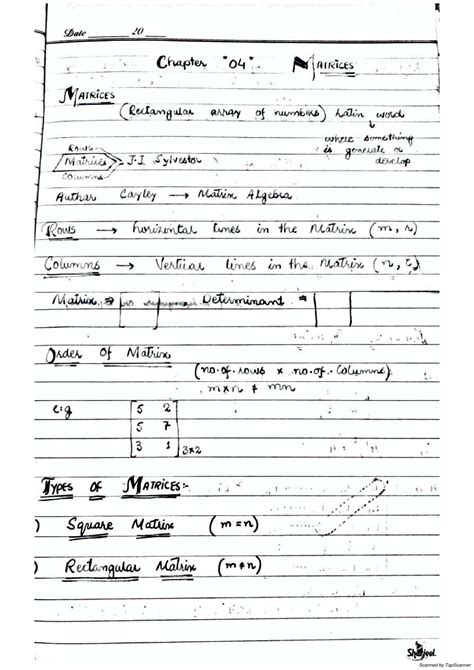 Date 20
Chapter "04". MATRICES
MATRICES
(Rectangular array of numbers) Latin word
where something
is generate or
develop
Rows
Matrices → J.J Sylvestor
Columns
Author Cayley → Matrix Algebra
Rows → horizontal lines in the Matrix (m, r)
Columns → Vertical lines in the Matrix (n, c)
Matrix ⇒ [ ] Determinant = | |
Order of Matrix
(no. of. rows × no. of. Columns)
m×n ≠ mn
e:g
5 2
5 7
3 1 3×2
TYPES OF MATRICES:-
) Square Matrix (m = n)
) Rectangular Matrix (m ≠ n)
Sharjeel.
Scanned by TapScanner